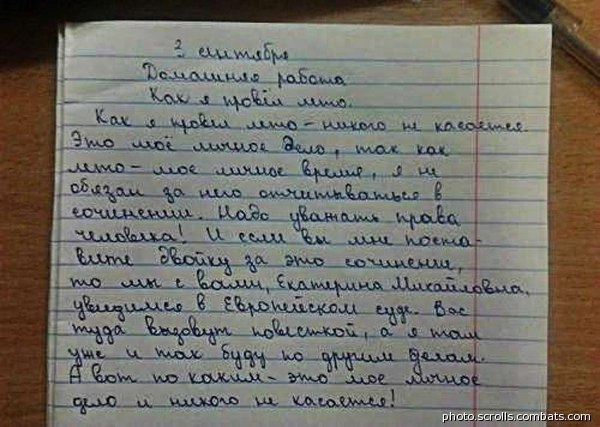 3 сентября
Домашняя работа
Как я провёл лето.
Как я провёл лето – никого не касается.
Это моё личное дело, так как
лето – мое личное время, я не
обязан за него отчитываться в
сочинении. Надо уважать права
человека! И если вы мне поста-
вите двойку за это сочинение,
то мы с вами, Екатерина Михайловна,
увидимся в Европейском суде. Вас
туда вызовут повесткой, а я там
уже и так буду по другим делам.
А вот по каким – это мое личное
дело и никого не касается!
photo.scrolls.combats.com